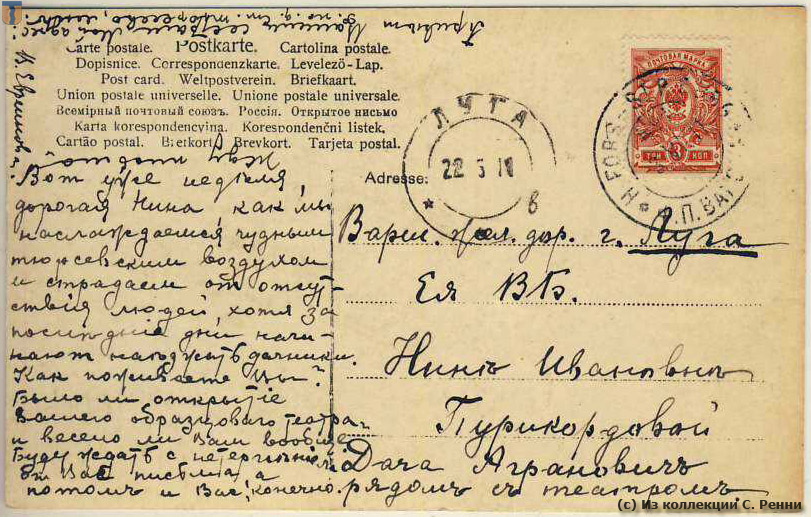 Привѣт Вашей сестрѣ. Мой адрес:
Carte postale. Postkarte. Cartolina postale.
Dopisnice. Correspondenzkarte. Levelező-Lap.
Post card. Weltpostverein. Briefkaart.
Union postale universelle. Unione postale universale.
Всемірный почтовый союзъ. Россія. Открытое письмо
Karta korespondencyjna. Korespondenční listek.
Cartão postal. Brevkort. Tarjeta postal.
ПОЧТОВАЯ МАРКА
ТРИ 3 КОП
ЛУГА
22 5 11
в
Adresse:
Вот уже недѣля,
дорогая Нина, как мы
наслаждаемся чудным
воздухом
и страдаем от отсут-
ствія людей, хотя за
послѣдніе дни начи-
нают наѣзжать дачники.
Как поживаете Вы?
Было ли открытіе
Вашего образцоваго театра
и весело ли Вам вообще
Буду ждать с нетерпѣніем
от Вас письма, а
потомъ и Вас, конечно.
Варш. жел. дор. г. Луга
Ея ВБ.
Нинѣ Ивановнѣ
Пурикордовой
Дача Аграновичъ
рядомъ съ театромъ
(c) Из коллекции С. Ренни